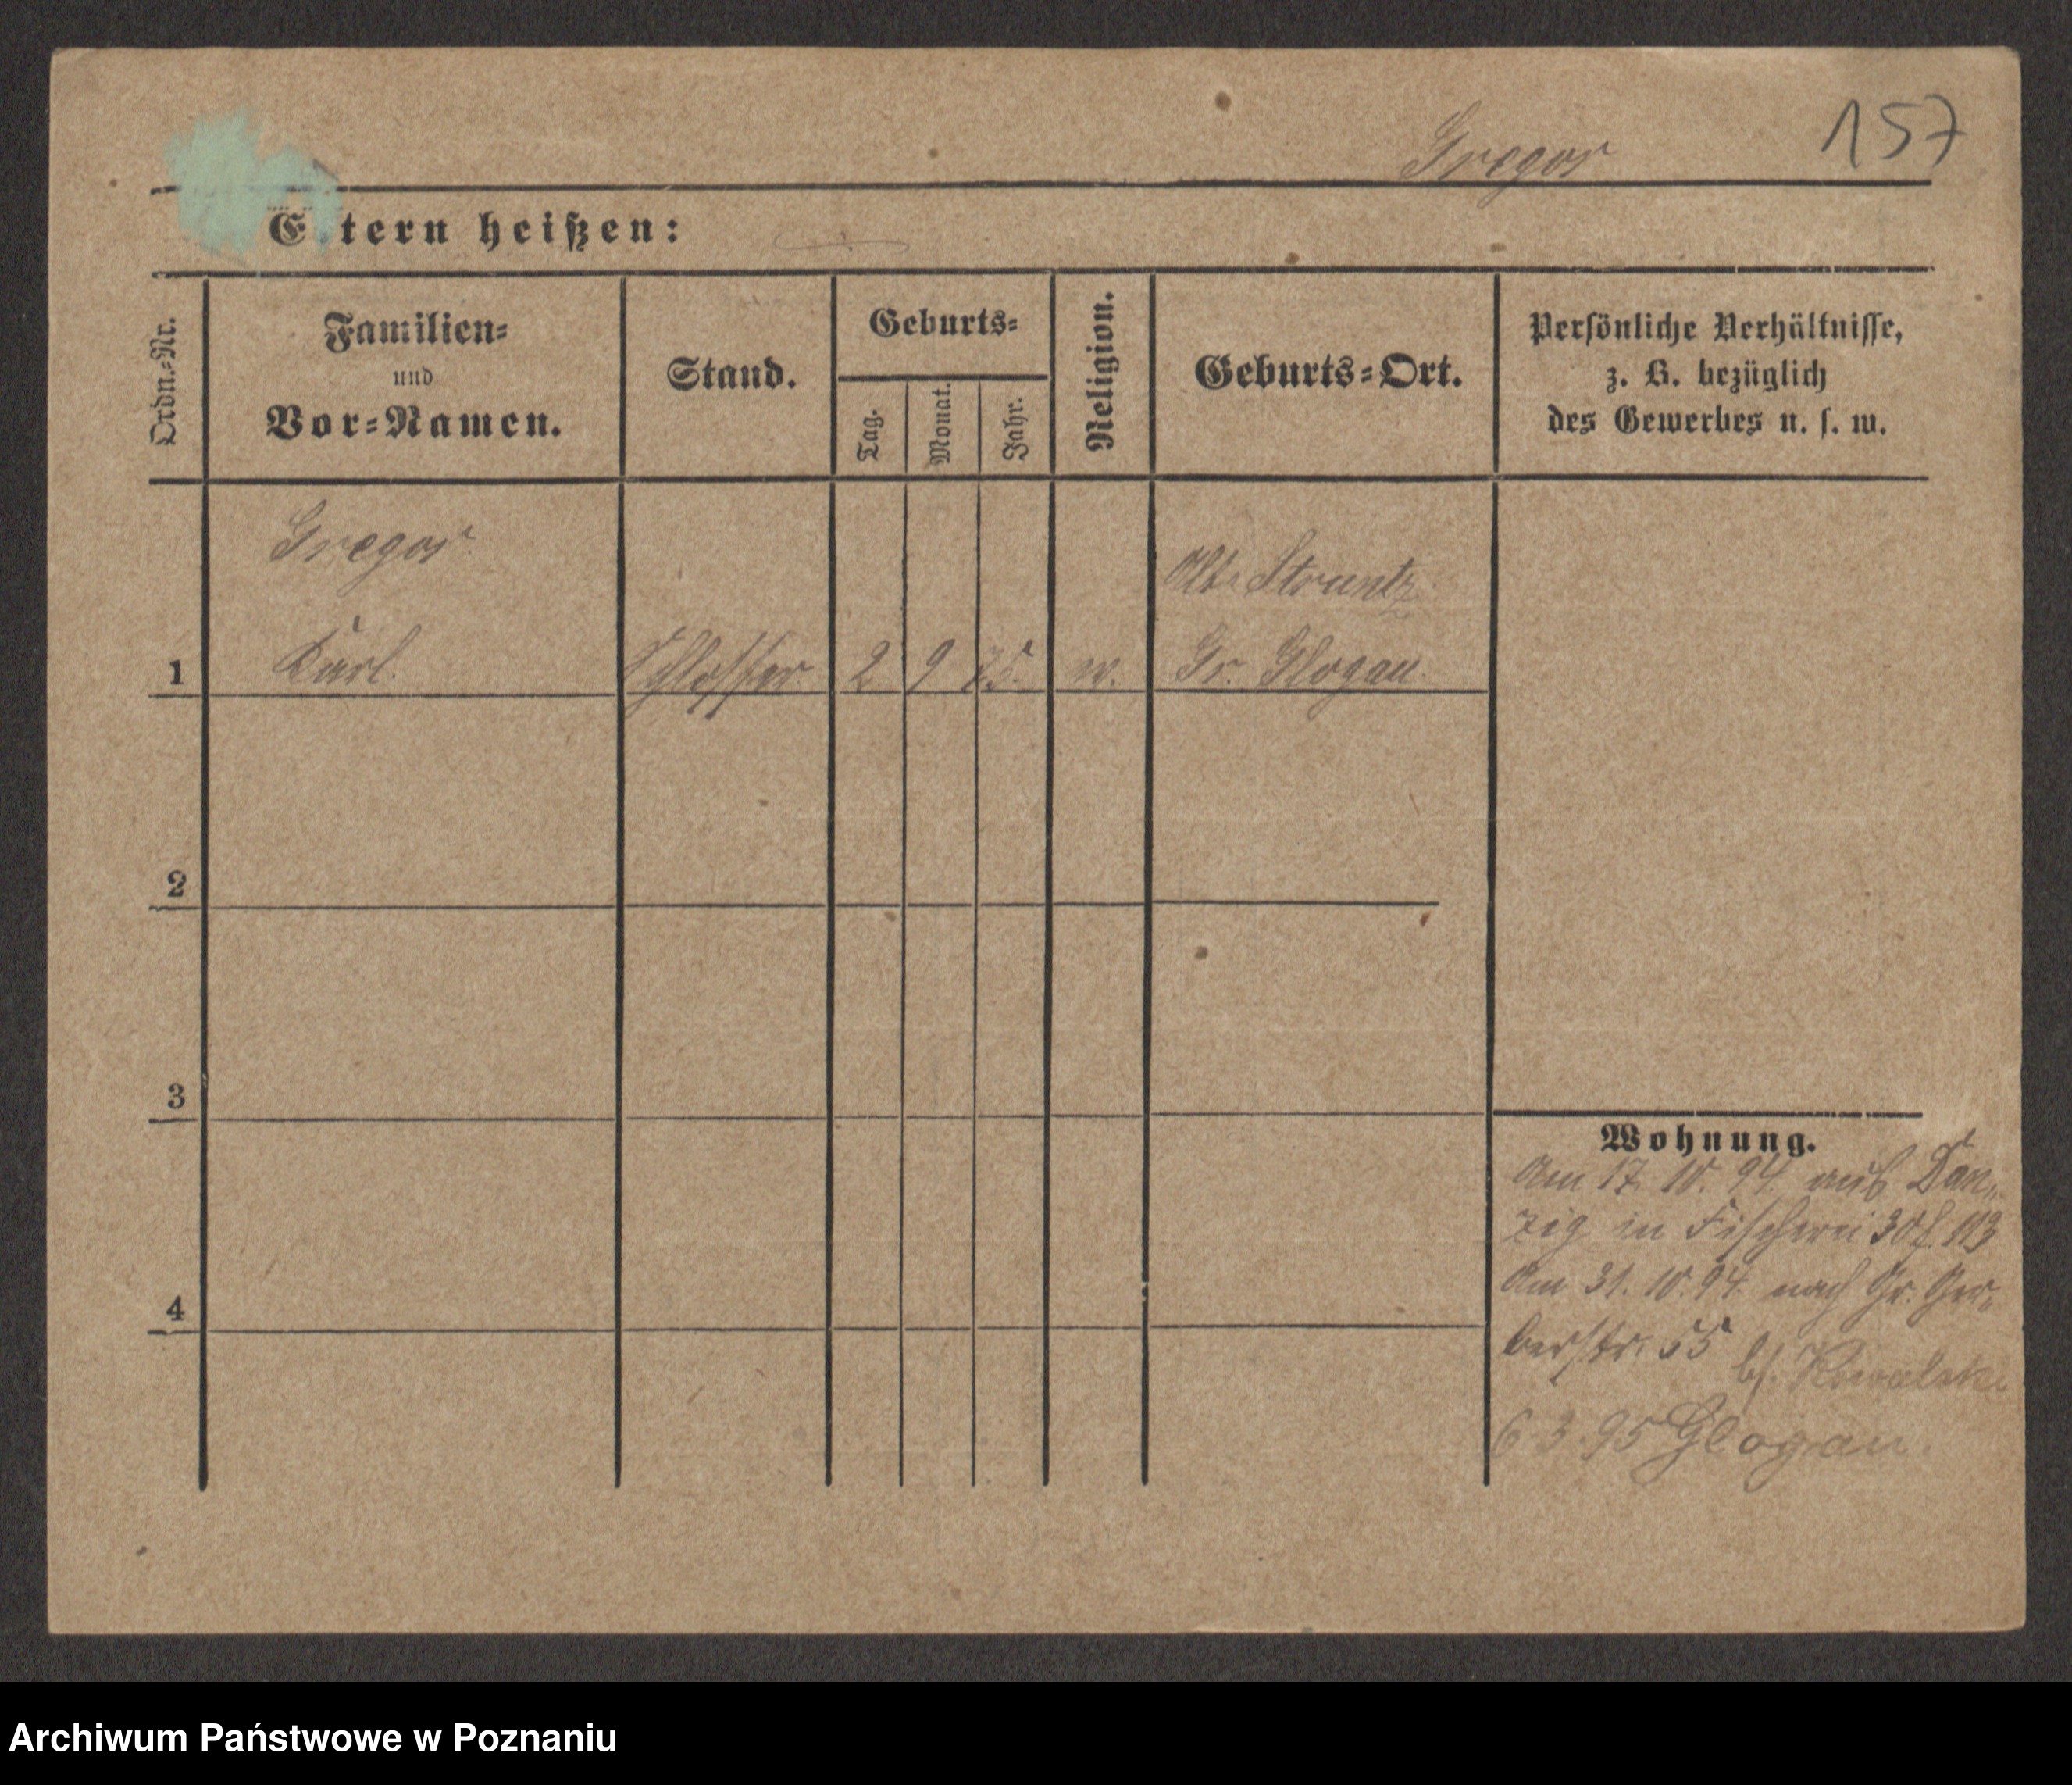 157
Gregor
Eltern heißen:
Ordn.-Nr.
Familien-
und
Vor-Namen.
Stand.
Geburts-
Tag.
Monat.
Jahr.
Religion.
Geburts-Ort.
Persönliche Verhältnisse,
z. B. bezüglich
des Gewerbes u. s. w.
Gregor
Alt. Struntz
1 Karl. Schlosser 2 9 75. Gr. Glogau.
2
3
Wohnung.
Am 17. 10. 94. aus Dan-
zig in Fischerei 30
Am 31. 10. 94. nach Gr. Ger-
4
berstr. 55
b/. Kowalski
6 3 95 Glogau.
Archiwum Państwowe w Poznaniu